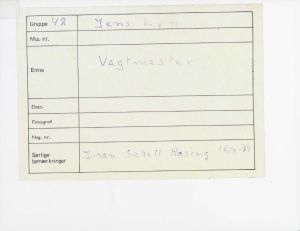 Gruppe 42 Jens Lyn
Mus. nr.
Emne Vagtmester
Dato
Fotograf
Neg. nr.
Særlige bemærkninger Johan Schell Rosing